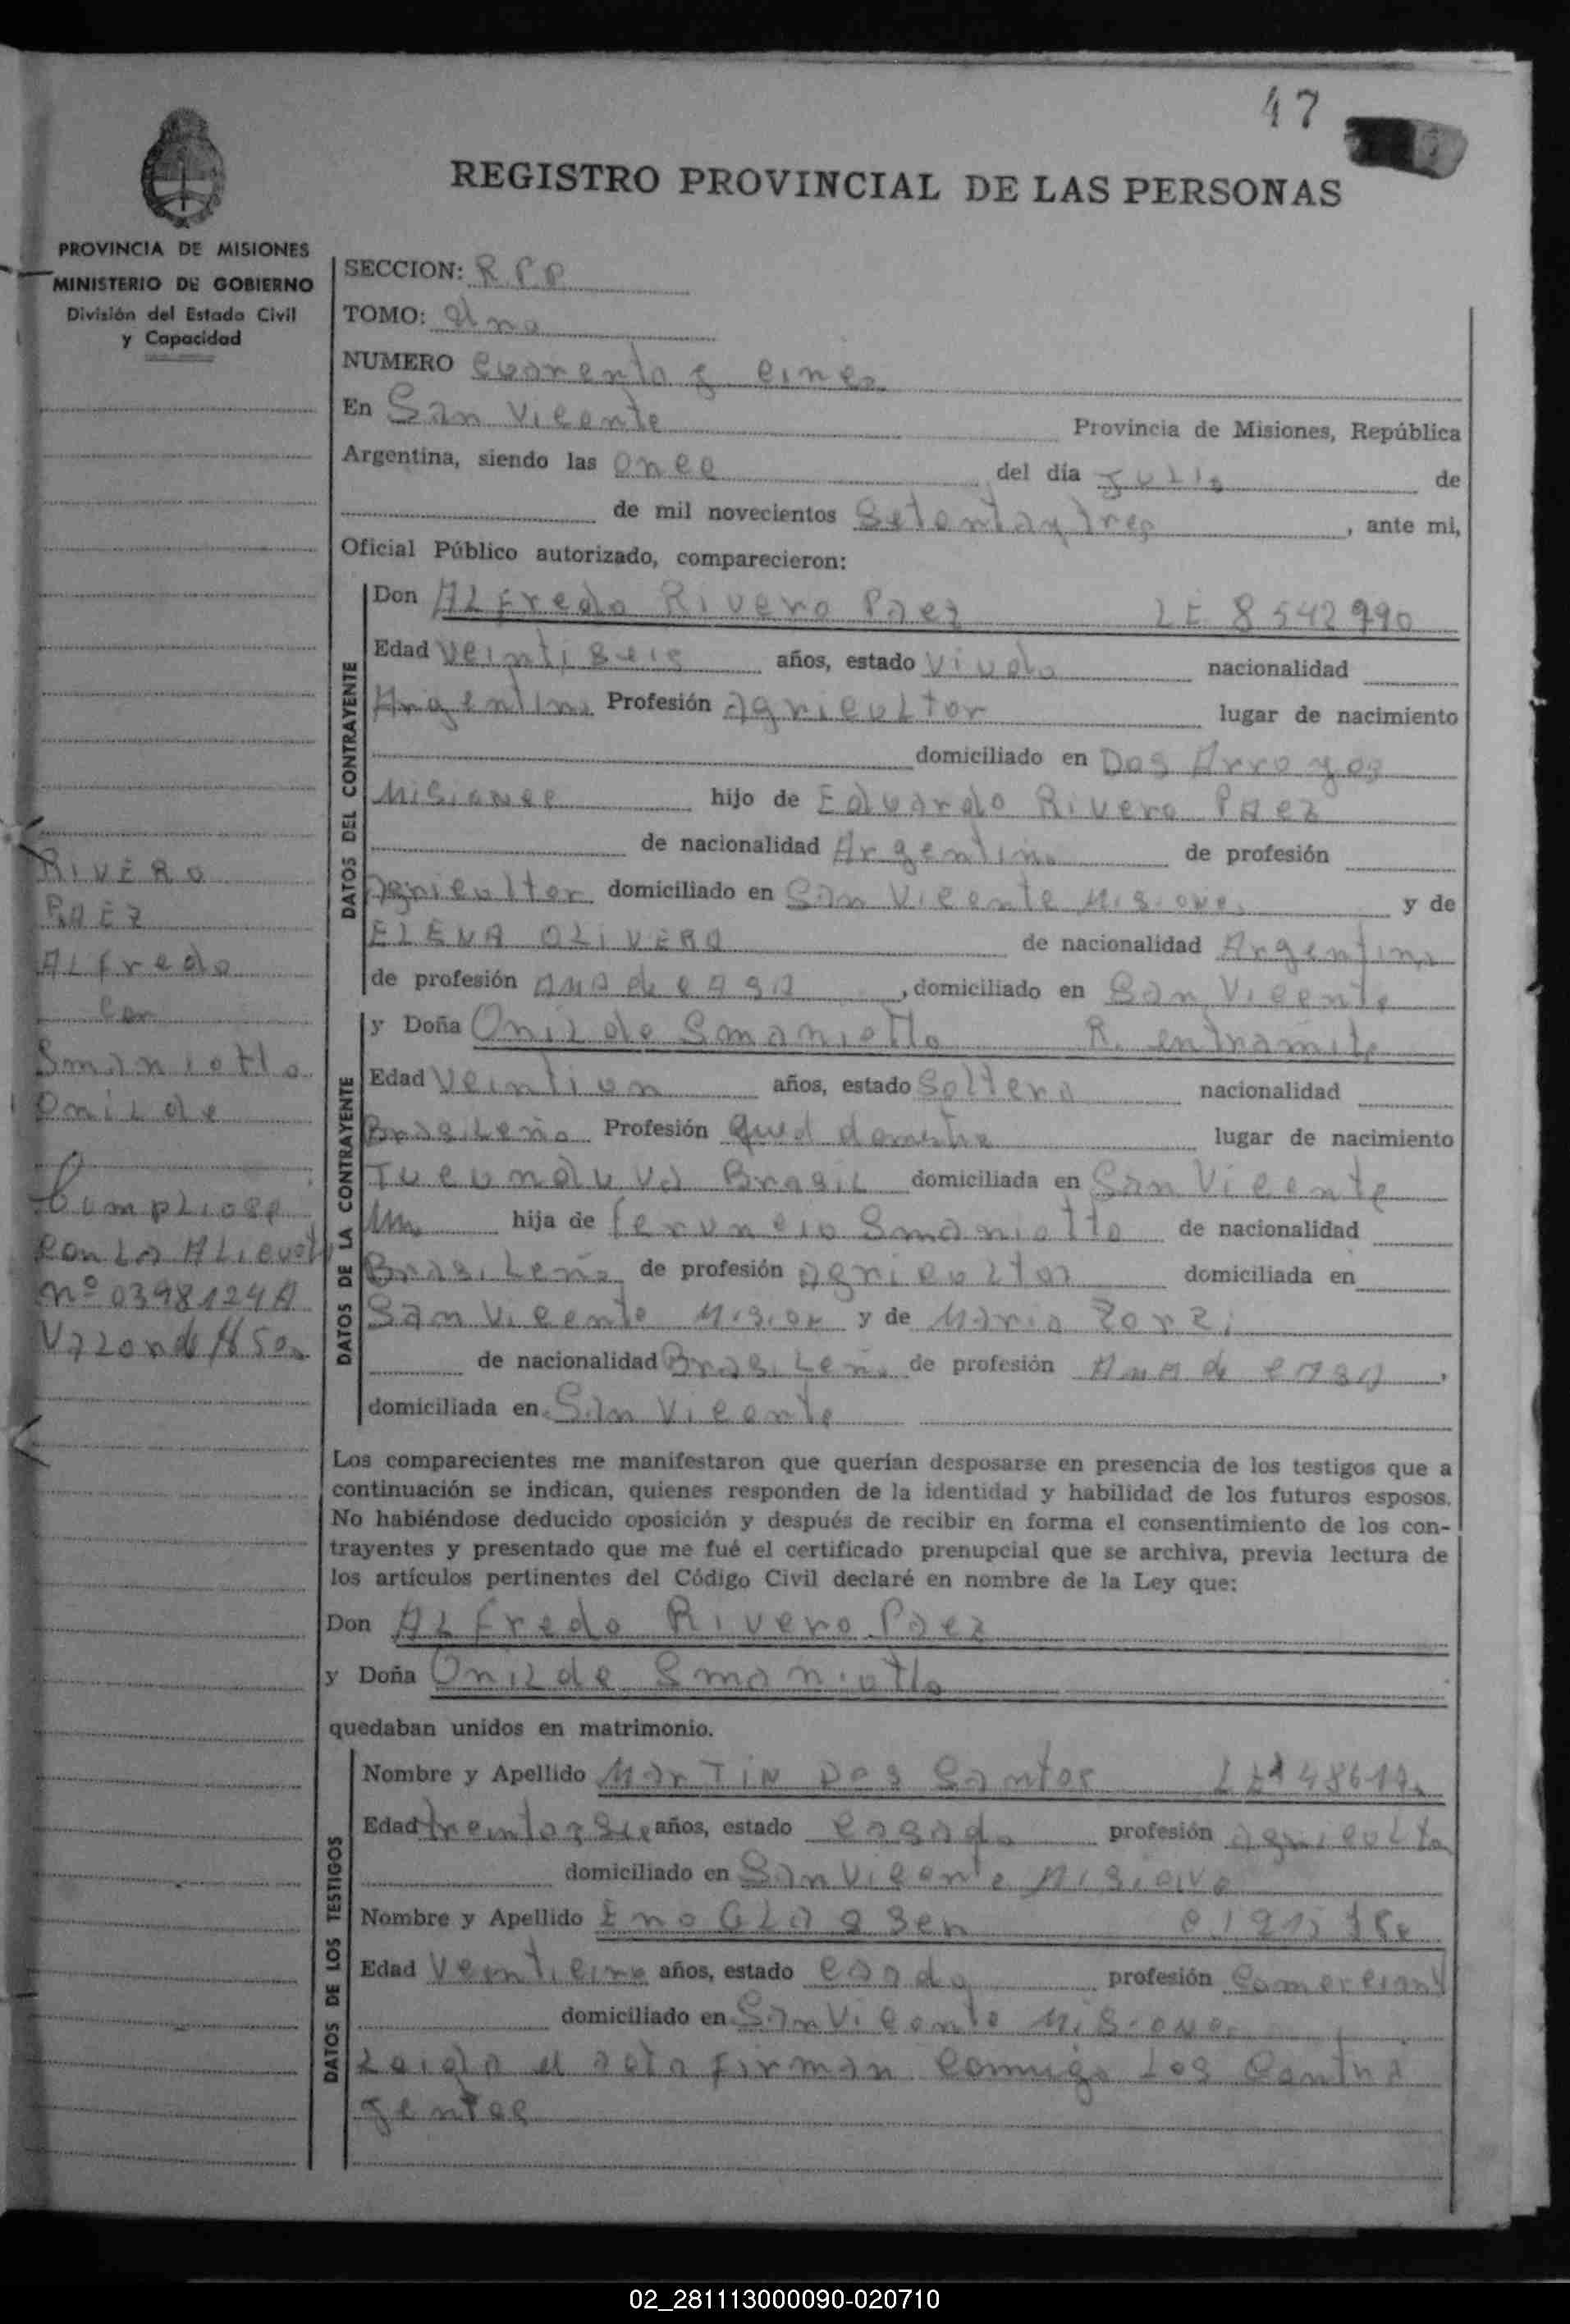 47
REGISTRO PROVINCIAL DE LAS PERSONAS
PROVINCIA DE MISIONES
MINISTERIO DE GOBIERNO
División del Estado Civil
y Capacidad
SECCION: R.P.P
TOMO: Uno
NUMERO Cuarenta y cinco
En San Vicente Provincia de Misiones, República
Argentina, siendo las once del día Julio de
de mil novecientos Setentaytres, ante mi,
Oficial Público autorizado, comparecieron:
DATOS DEL CONTRAYENTE
Don ALfredo Rivero Paez LE 8542990
Edad Veintiseis años, estado Viudo nacionalidad
Argentino Profesión Agricultor lugar de nacimiento
domiciliado en Dos Arroyos
Misiones hijo de Eduardo Rivero PAez
de nacionalidad Argentino de profesión
Agricultor domiciliado en San Vicente Misiones y de
ELENA OLIVERA de nacionalidad Argentina
de profesión AMA de casa, domiciliado en San Vicente
DATOS DE LA CONTRAYENTE
y Doña Onilde Smaniotto R. entramite
Edad Veintiun años, estado Soltera nacionalidad
Brasileña Profesión Qued domestic lugar de nacimiento
Tucunduva Brasil domiciliada en San Vicente
hija de Feruncio Smaniotto de nacionalidad
Brasileño de profesión Agricultor domiciliada en
San Vicente Mision y de Maria Zorzi
de nacionalidad Brasileña de profesión AMA de casa,
domiciliada en San Vicente
RIVERO
PAEZ
ALfredo
Con
Smaniotto
Onilde
Cumpliose
con La
Nº 0398124A
Los comparecientes me manifestaron que querían desposarse en presencia de los testigos que a
continuación se indican, quienes responden de la identidad y habilidad de los futuros esposos.
No habiéndose deducido oposición y después de recibir en forma el consentimiento de los con-
trayentes y presentado que me fué el certificado prenupcial que se archiva, previa lectura de
los artículos pertinentes del Código Civil declaré en nombre de la Ley que:
Don ALfredo Rivero Paez
y Doña Onilde Smaniotto
quedaban unidos en matrimonio.
DATOS DE LOS TESTIGOS
Nombre y Apellido MarTIN Dos Santos
Edad años, estado casado profesión Agriculto
domiciliado en San Vicente Misione
Nombre y Apellido Eno
Edad años, estado casado profesión Comerciant
domiciliado en San Vicente Misiones
Leida el acta firman Comigo Los Contra
yentes
02_281113000090-020710